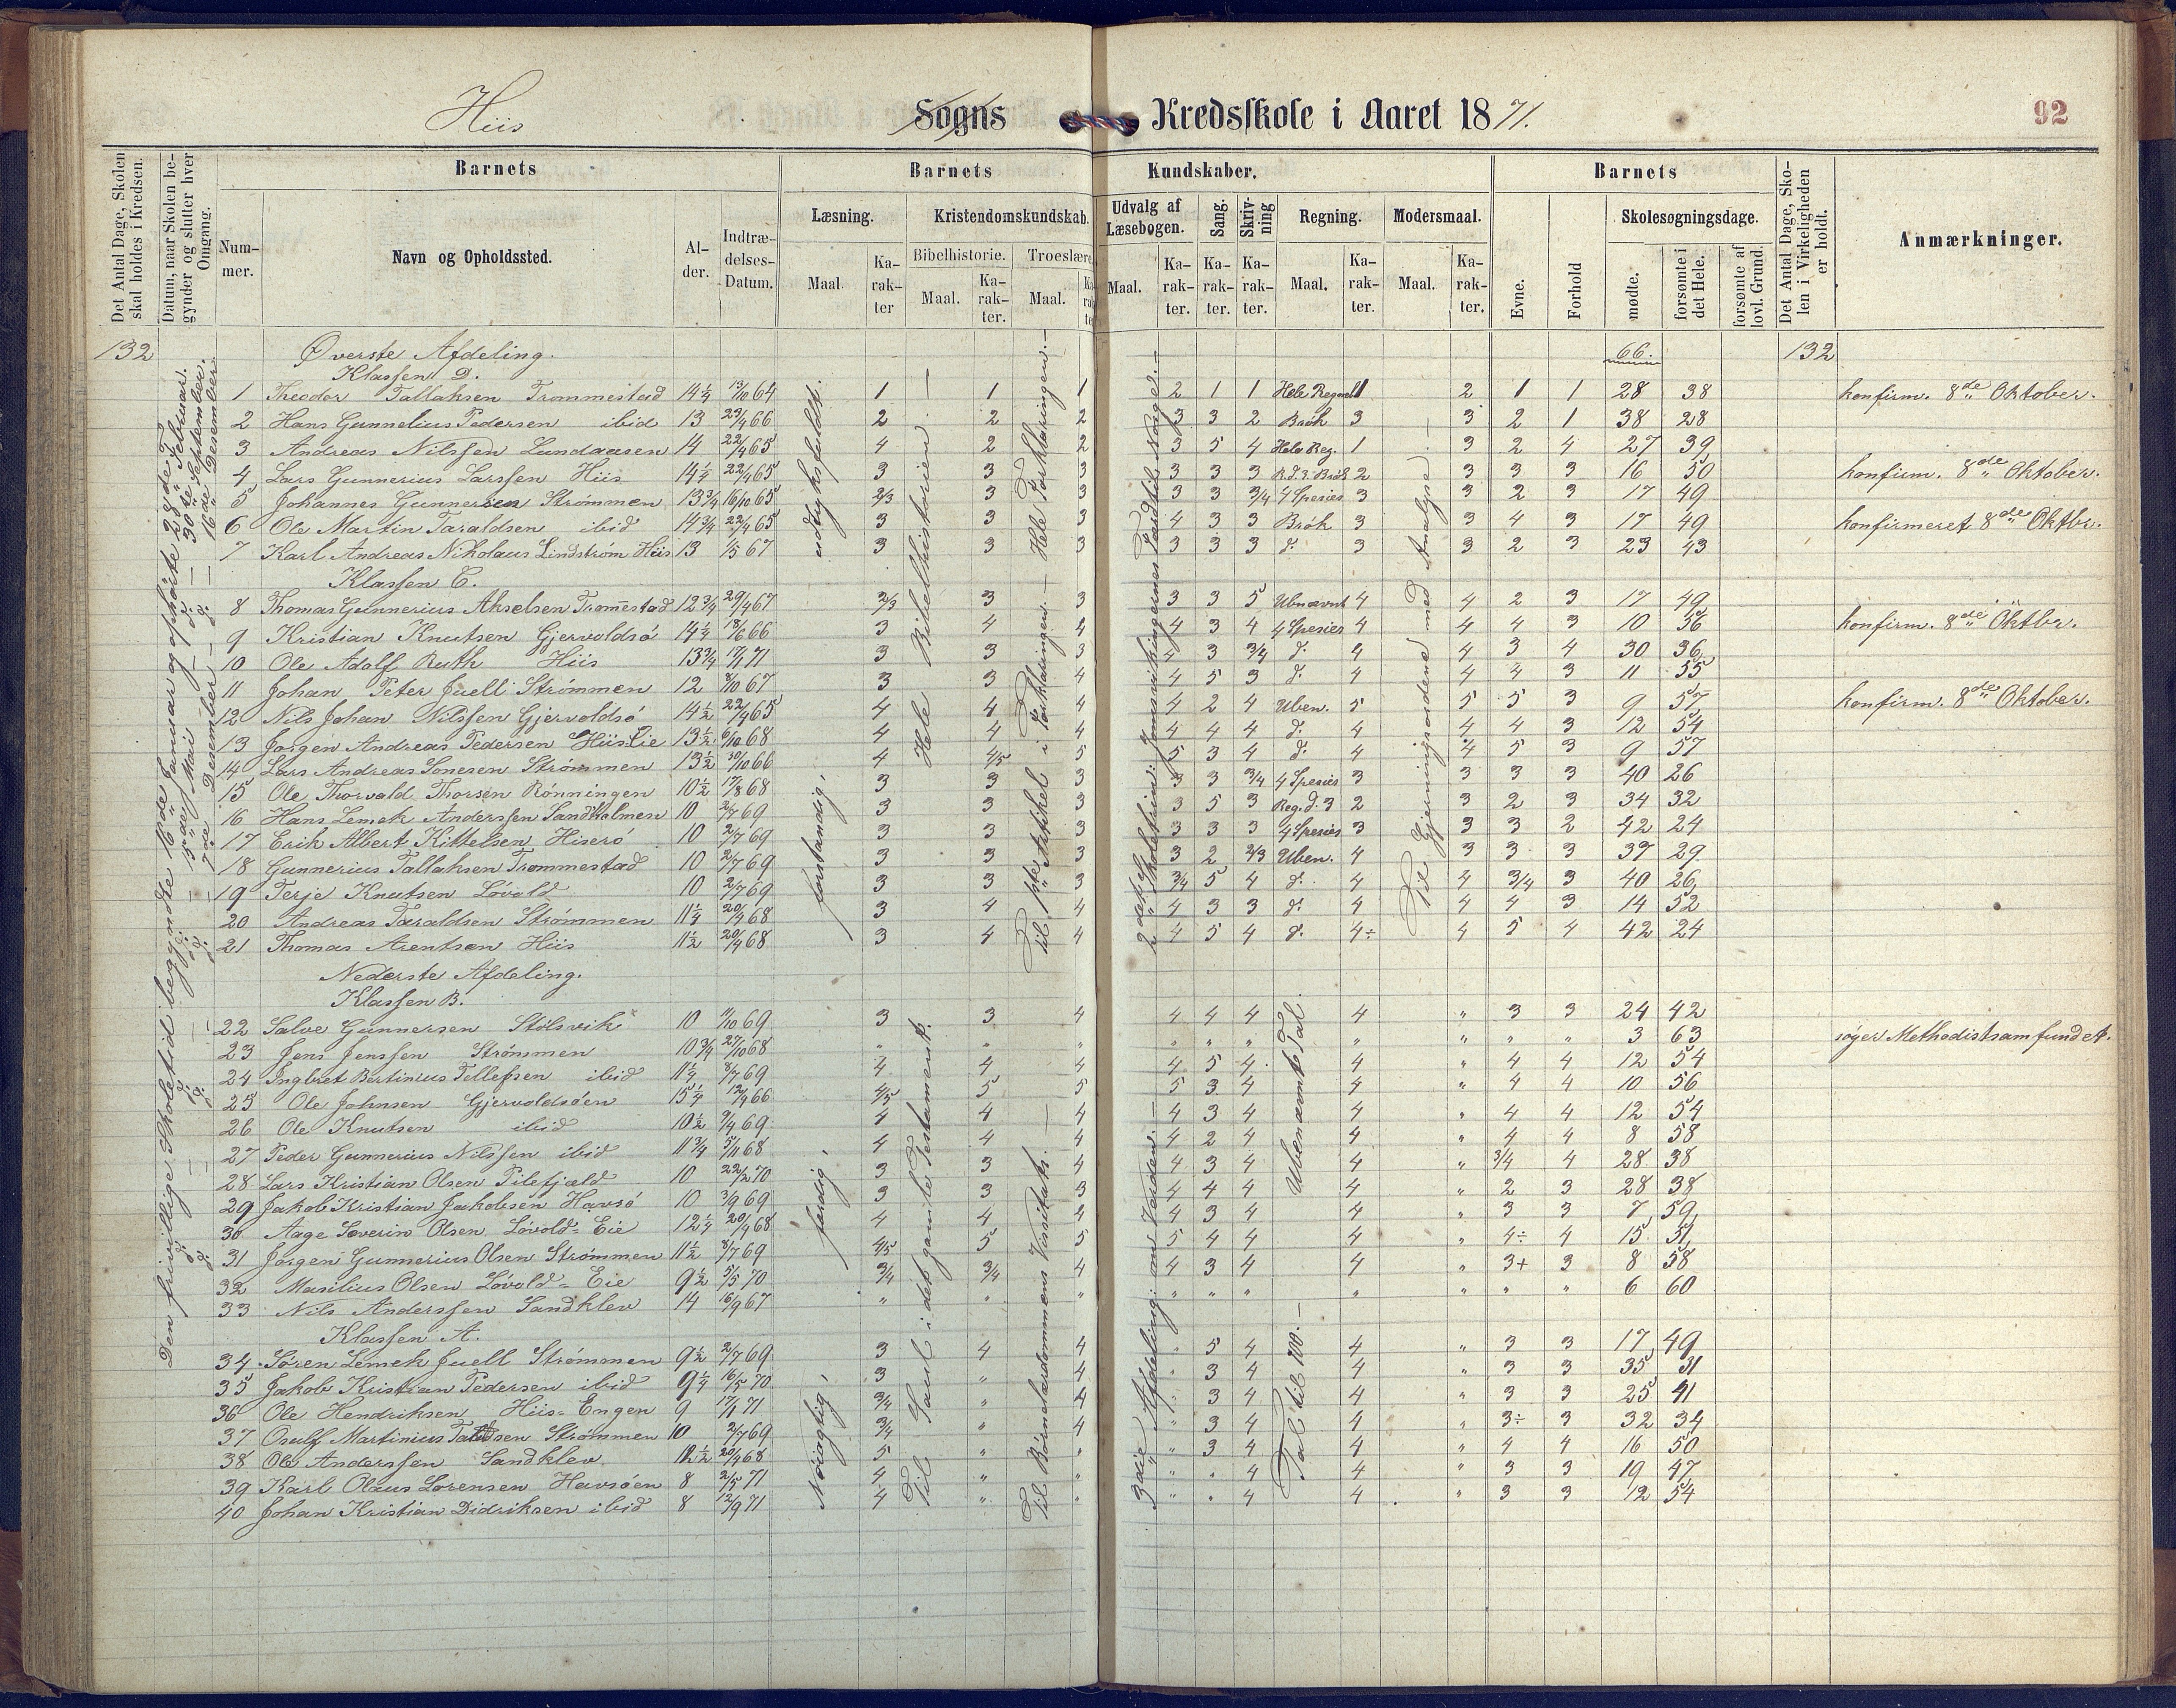 Hiis Sogns Kredsskole i Aaret 1871. 92
Det Antal Dage, Skolen skal holdes i Kredsen.
Datum, naar Skolen begynder og slutter hver Omgang.
Barnets
Nummer.
Navn og Opholdssted.
Alder.
Indtrædelses-Datum.
Barnets Kundskaber.
Læsning.
Maal.
Karakter
Kristendomskundskab.
Bibelhistorie.
Maal.
Karakter.
Troeslære
Maal.
Udvalg af Læsebogen.
Maal.
Karakter.
Sang.
Karakter.
Skrivning
Karakter.
Regning.
Maal.
Karakter.
Modersmaal.
Maal.
Karakter.
Barnets
Evne.
Forhold
Skolesøgningsdage.
mødte.
forsømte i det Hele.
forsømte af lovl. Grund.
Det Antal Dage, Skolen i Virkeligheden er holdt.
Anmærkninger.
132 Øverste Afdeling. 66. 132
Klassen D.
1 Theodor Tallaksen Trommestad 14¼ 13/10 64 1 1 1 2 1 1 Hele Regnel 1 2 1 1 28 38 konfirm. 8de Oktober.
2 Hans Gunnelius Pedersen ibid 13 23/4 66 2 2 2 3 3 2 Brøk 3 3 2 1 38 28
3 Andreas Nilssen Lundaasen 14 22/4 65 4 2 2 3 5 4 Hele Reg. 1 3 2 4 27 39
4 Lars Gunnerius Larssen Hiis 14¼ 22/4 65 3 3 3 3 3 3 R.d.3. Brøk 2 3 3 3 16 50 konfirm. 8de Oktober.
5 Johannes Gunnersen Strømmen 13¾ 16/10 65 2/3 3 3 3 3 3/4 4 Spesies 3 3 2 3 17 49
6 Ole Martin Taraldsen ibid 14¾ 22/4 65 3 3 3 4 3 3 Brøk 3 3 4 3 17 49 konfirmeret 8de Oktbr.
7 Karl Andreas Nikolaus Lindstrøm Hiis 13 1/5 67 3 3 3 3 3 3 d. 3 3 2 3 23 43
Klassen C.
8 Thomas Gunnerius Akselsen Trom̄estad 12¾ 29/4 67 2/3 3 3 3 3 5 Ubnævnt 4 4 2 3 17 49
9 Kristian Knutsen Gjervoldsø 14¼ 18/6 66 3 4 4 4 3 4 4 Spesier 4 4 4 3 10 56 konfirm. 8de Oktbr.
10 Ole Adolf Ruth Hiis 13¾ 17/1 71 3 3 3 4 3 3/4 d. 4 4 3 4 30 36
11 Johan Peter Juell Strømmen 12 8/10 67 3 3 4 4 5 3 d. 4 4 4 3 11 55
12 Nils Johan Nilssen Gjervoldsø 14½ 22/4 65 4 4 4 4 2 4 Uben. 5 5 5 3 9 57 konfirm. 8de Oktober.
13 Jørgen Andreas Pedersen Hiis Eie 13½ 6/10 68 4 4 4 4 4 4 d. 4 4 4 3 12 54
14 Lars Andreas Sonesen Strømmen 13½ 30/10 66 4 4/5 5 5 3 4 d. 4 4 5 3 9 57
15 Ole Thorvald Thorsen Rønningen 10½ 17/8 68 3 3 3 3 3 3/4 4 Spesies 3 3 3 3 40 26
16 Hans Lemek Anderssen Sandholmen 10 2/7 69 3 3 3 3 5 3 Reg.d.3 2 3 2 3 34 32
17 Erik Albert Kittelsen Hiserø 10 2/7 69 3 3 3 3 3 3 4 Spesies 3 3 3 2 42 24
18 Gunnerius Tallaksen Trommestad 10 2/7 69 3 3 3 3 2 2/3 Uben. 4 3 3 3 37 29
19 Terje Knutsen Løvold 10 2/7 69 3 3 3 3/4 5 4 d. 4 4 3/4 3 40 26
20 Andreas Taraldsen Strømmen 11¼ 20/4 68 3 4 4 4 3 3 d. 4 4 4 3 14 52
21 Thomas Arentsen Hiis 11½ 20/4 68 3 4 4 4 5 4 d. 4÷ 4 5 4 42 24
Nederste Afdeling.
Klassen B.
22 Salve Gunnersen Stølsvik 10 11/10 69 3 3 4 4 4 4 4 " 3 3 24 42
23 Jens Jenssen Strømmen 10¾ 27/10 68 " " " " " " " " " " 3 63 søger Methodistsamfundet.
24 Inglret Bertinius Tellefsen ibid 11¼ 8/7 69 4 4 4 4 5 4 4 " 4 4 12 54
25 Ole Johnsen Gjervoldsøen 15¼ 12/4 66 4/5 5 5 5 3 4 4 " 4 4 10 56
26 Ole Knutsen ibid 10½ 9/4 69 4 4 4 4 3 4 4 " 4 4 12 54
27 Peder Gunnerius Nilssen ibid 11¾ 5/11 68 4 4 4 4 2 4 4 " 4 4 8 58
28 Lars Kristian Olsen Pilefjæld 10 22/2 70 3 3 4 4 3 4 4 " 3/4 4 28 38
29 Jakob Kristian Jakobsen Havsø 10 3/9 69 3 3 3 4 4 4 4 " 2 3 28 38
30 Aage Severin Olsen Løvold-Eie 12¼ 20/4 68 4 4 4 4 3 4 4 " 3 3 7 59
31 Jørgen Gunnerius Olsen Strømmen 11½ 8/7 69 4/5 5 5 5 4 4 4 " 4÷ 4 15 51
32 Masilius Olsen Løvold-Eie 9½ 5/5 70 3/4 3/4 4 4 3 4 4 " 3+ 3 8 58
33 Nils Anderssen Sandklev 14 16/9 67 " " " " " " " " " " 6 60
Klassen A.
34 Søren Lemek Juell Strømmen 9½ 2/7 69 3 4 4 " 5 4 4 " 3 3 17 49
35 Jakob Kristian Pedersen ibid 9¼ 16/5 70 3 " 4 " 3 4 4 " 3 3 35 31
36 Ole Hendriksen Hiis-Engen 9 17/1 71 3/4 " 4 " 3 4 4 " 3 3 25 41
37 Osulf Martinius Sen Strømmen 10 2/7 69 3/4 " 4 " 3 4 4 " 3÷ 3 32 34
38 Ole Anderssen Sandklev 12½ 20/4 68 5 " " " 3 4 4 " 4 4 16 50
39 Karl Olaus Sørensen Havsøen 8 2/5 71 4 " " " " 4 4 " 3 3 19 47
40 Johan Kristian Didriksen ibid 8 12/9 71 4 " " " " 4 4 " 3 3 12 54
Den frivillige Skoletid begyndte 16de Januar og ophørte 28de Februar.
d. d. 15de Mai d. 30de September.
d. d. 7de Desember d. 16de Desember
forstandig,
udtryksfuldt.
færdig,
Nøiagtig,
Hele Bibelhistorien.
Til Saul i det gamle Testament.
Til 1ste Artikel i Forklaringen. Hele Forklaringen.
Til Børnelærdommens Visitats.
2det Skoletrin: Færdtil Norge.
3die Afdeling: om Verden.
Ubenævnt Tal.
Tal til 100.
Til Gjerningsordene med Analyse